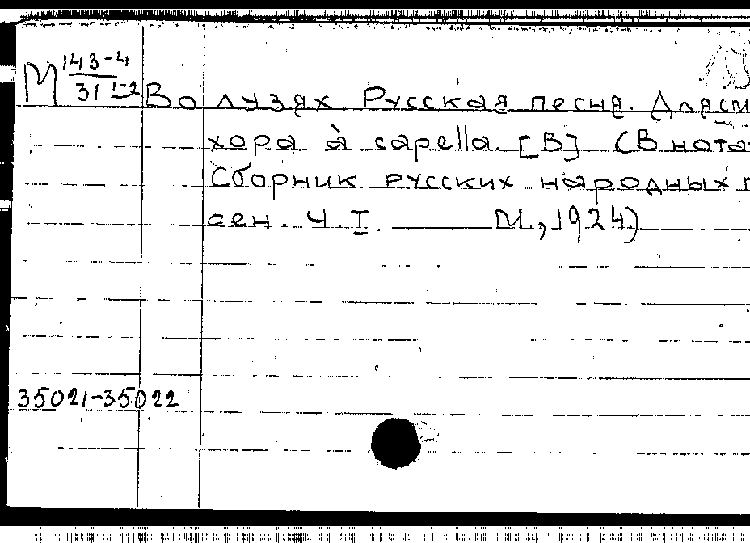 М 143-4
31 1-2
Во лузях. Русская песня. Для см
хора à capella. [В] (В нота
Сборник русских народных п
сен. Ч. I. М., 1924)
35021-35022